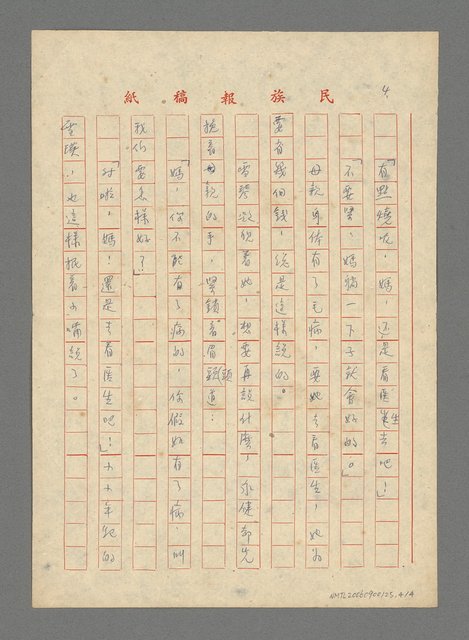 民族報稿紙
4.
「有點燒呢，媽，还是看医生去吧！」
「不要緊，媽躺一下子就會好的。」
母親身体有了毛病，要她去看医生，她为
要省幾個錢，総是這樣説的。
雪琴凝視着她，想要再說什麼，永健却先
抱着母親的手，緊鎖着眉頭道：
「媽，你不能有了病的，你假如有了病，叫
我们要怎樣好？」
「对啦，媽！還是去看医生吧！」小小年紀的
雪瑛，也這樣抿着小嘴説了。
NMTL20060900125, 4/4